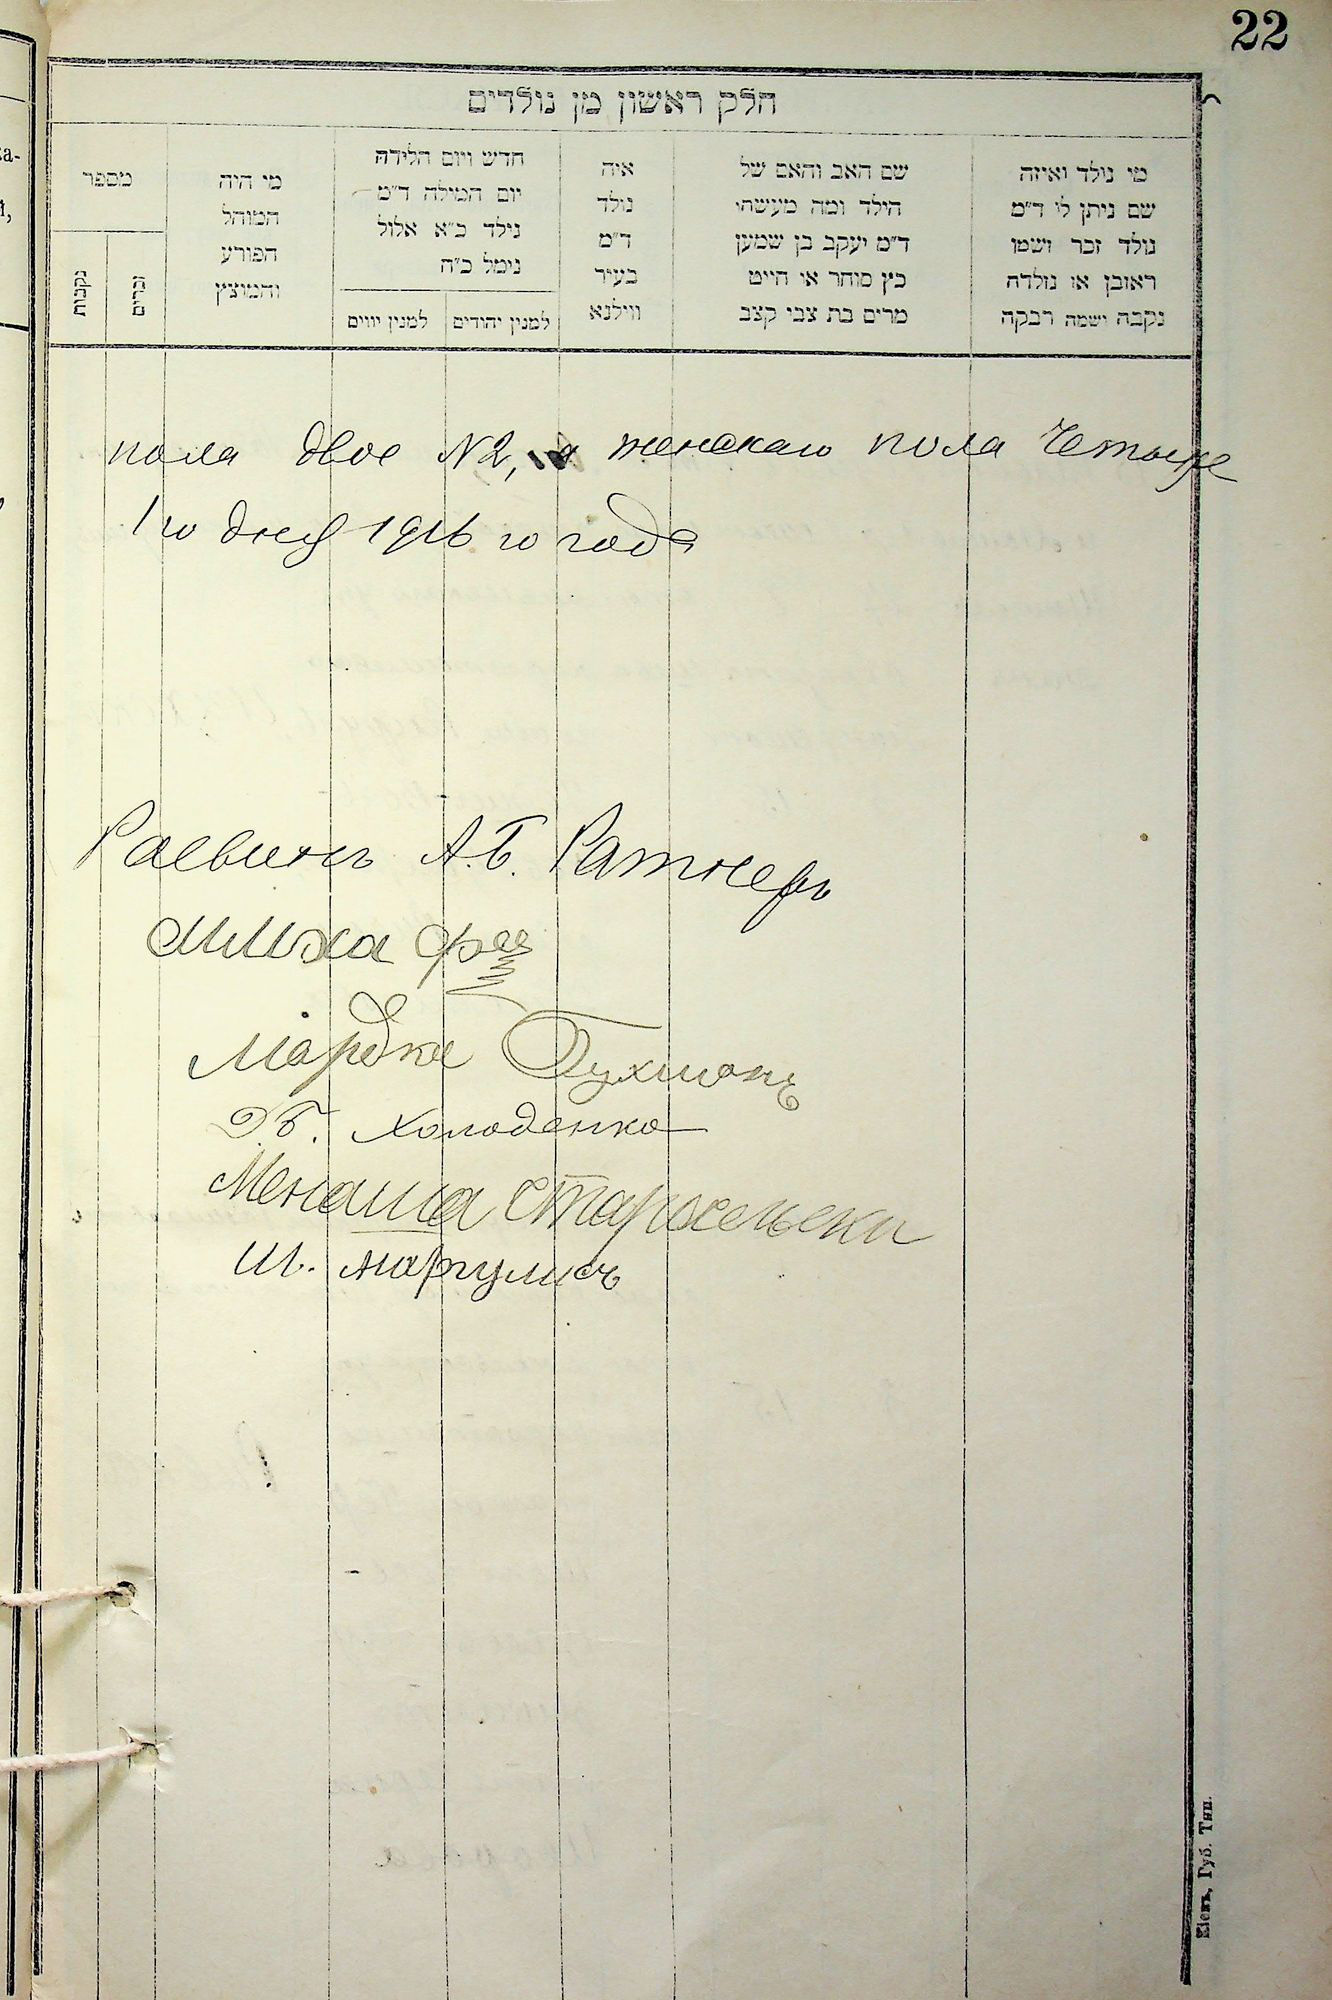 22
חלק ראשון מן נולדים
מי נולד ואיזה
שם ניתן לו ד"מ
נולד זכר ושמו
ראובן או נולדה
נקבה ושמה רבקה
שם האב והאם של
הילד ומה מעשהו
ד"מ יעקב בן שמעון
כץ סוחר או חייט
מרים בת צבי קצב
איה
נולד
ד"מ
בעיר
ווילנא
חדש ויום הלידה
יום המילה ד"מ
נילד כ"א אלול
נימל כ"ה
למנין יהודים
למנין יווים
מי היה
המוהל
הפורע
והמוצץ
מספר
זכרים
נקבות
пола двое №2, а женскаго пола Четыре
1го дня 1916 го года
Раввинъ А.Б. Ратнеръ
Мардко Бухманъ
Д.Б. Холоденко
Менаша Старосельски
Ш. Маргулисъ
Кіевъ, Губ. Тип.